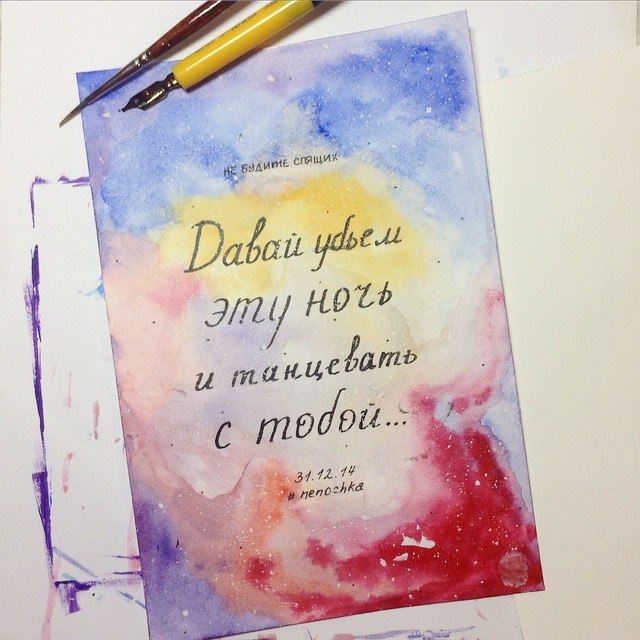 не будите спящих
Давай убьем
эту ночь
и танцевать
с тобой...
31.12.14
# nenochka